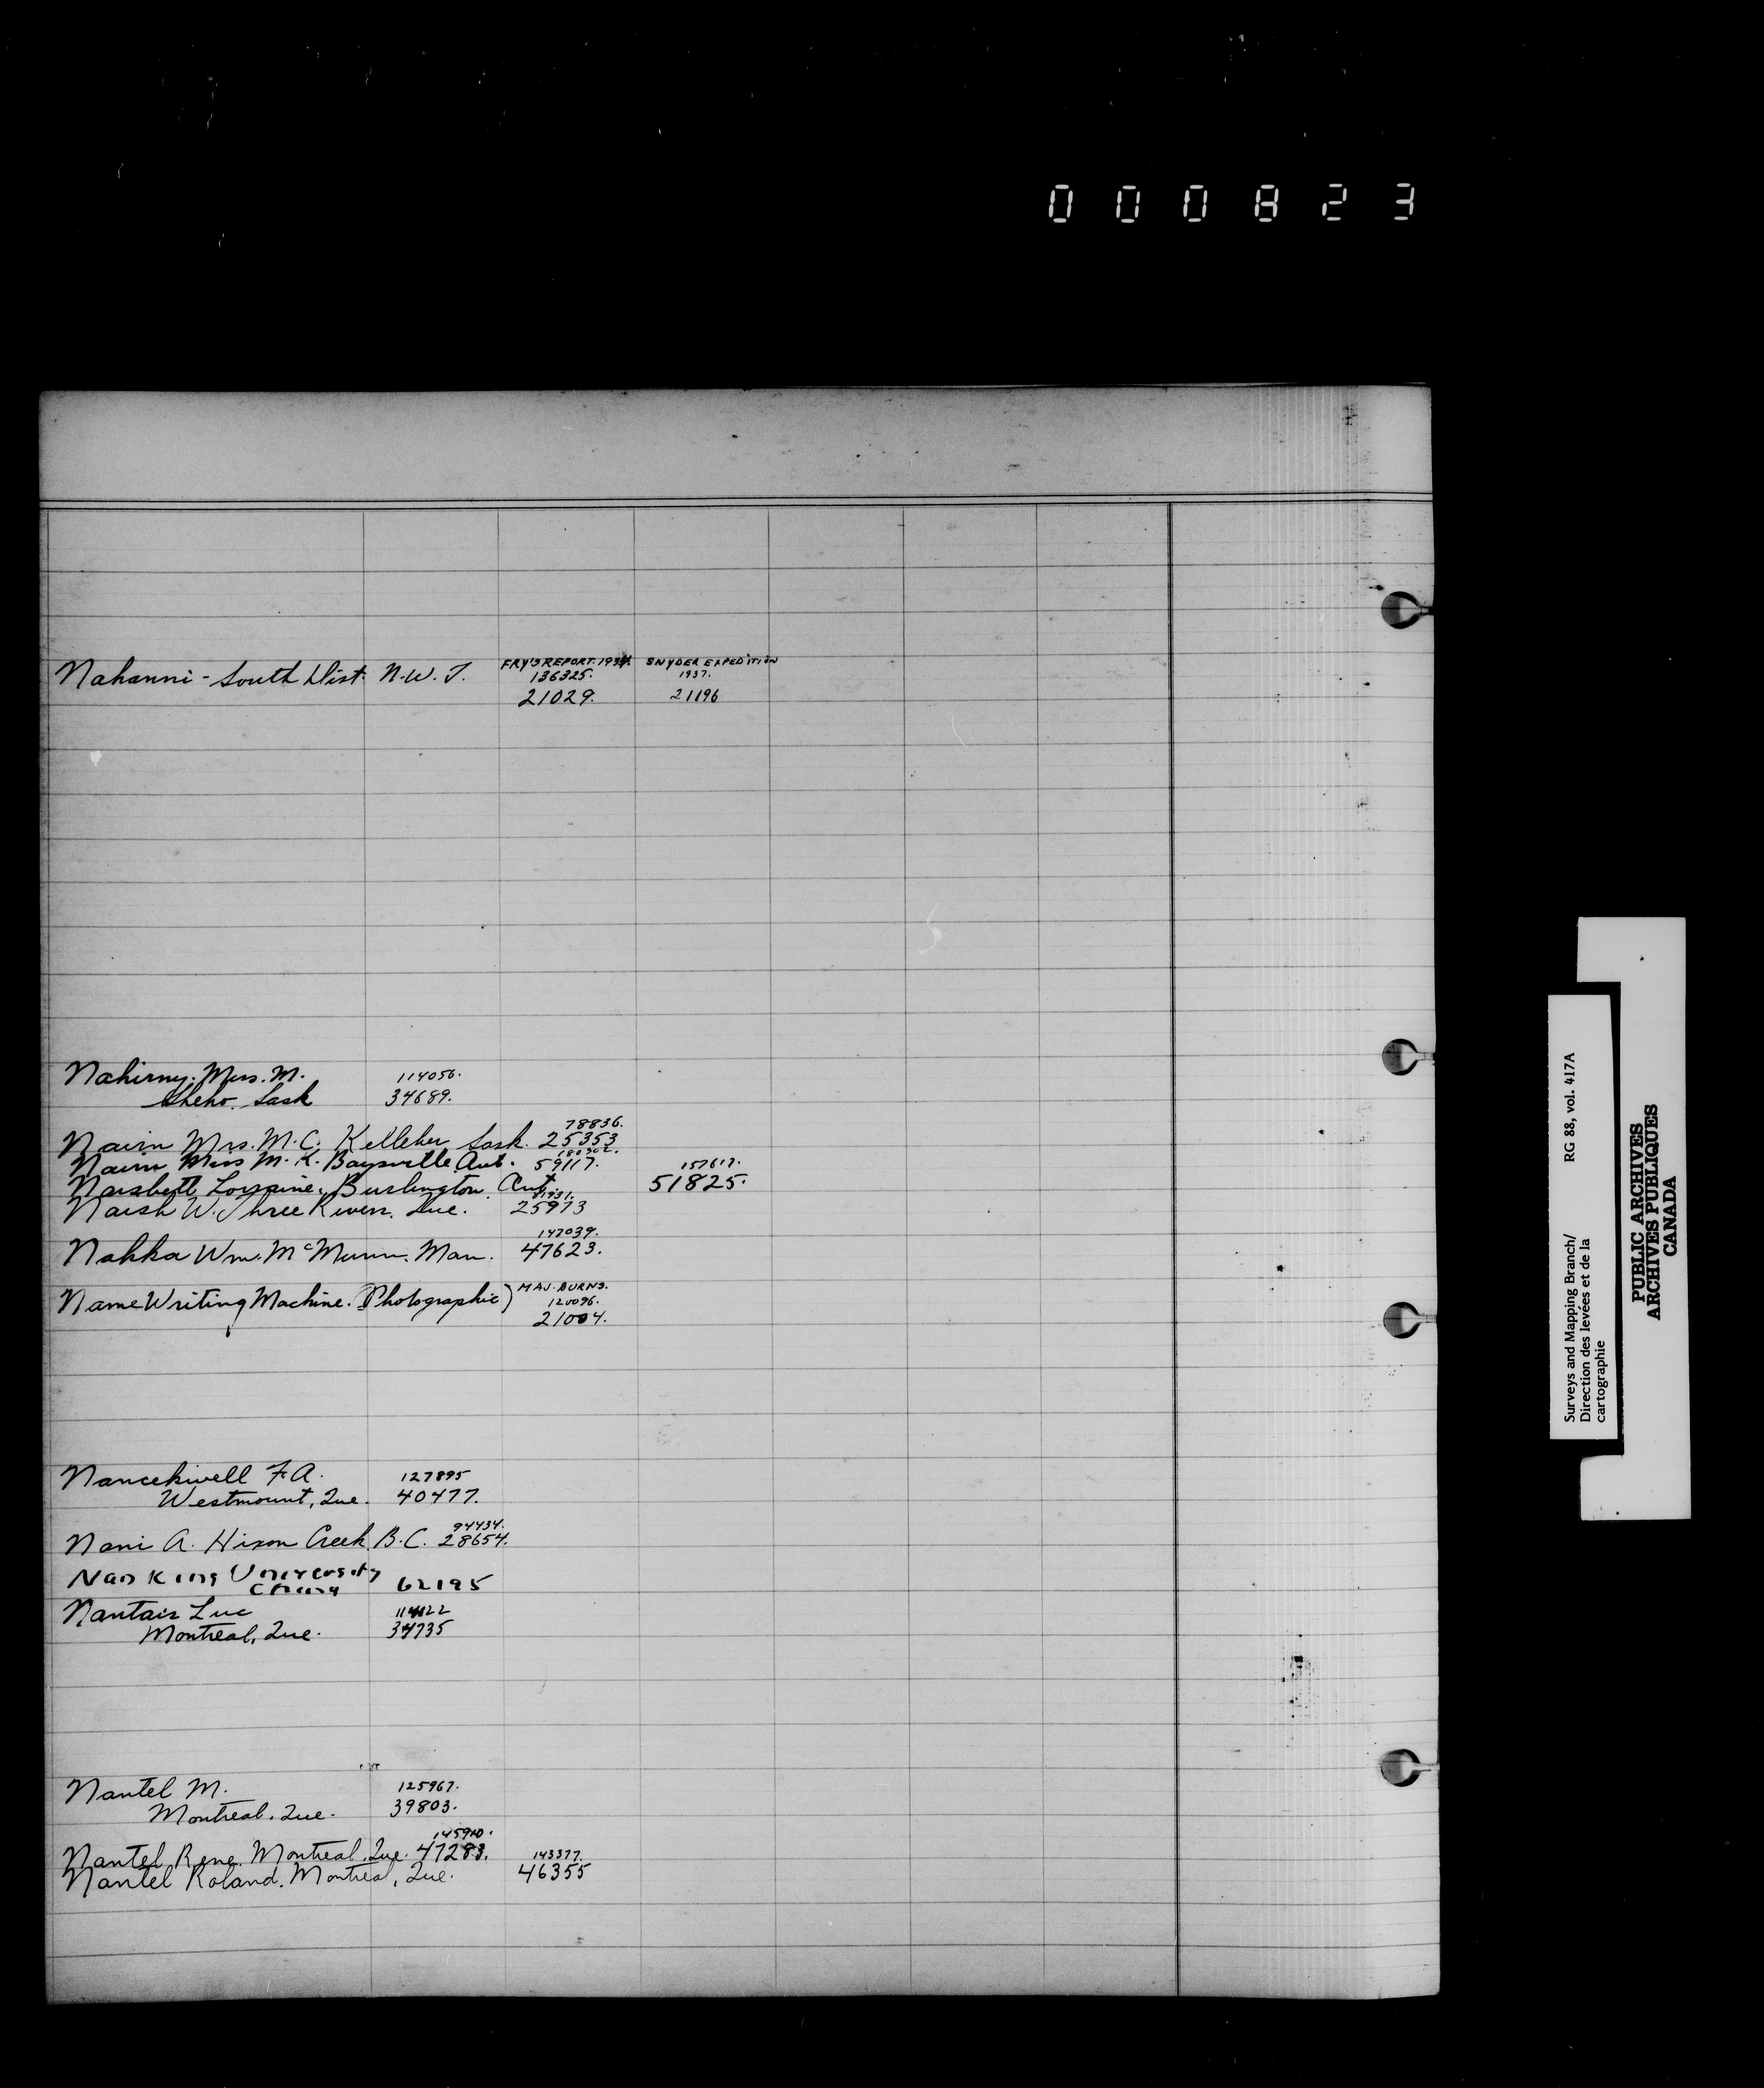 000823
FRY'S REPORT. 1934. SNYDER EXPEDITION
Nahanni - South Dist. N.W.T. 136325. 1937.
21029. 21196
Nahirny. Mrs. M. 114056.
Sheho. Sask 34689.
78836.
Nairn Mrs. M.C. Kelleher Sask. 25353
180302.
Nairn Miss M.K. Baysville. Ont. 59117. 157617.
Naisbett Lorraine. Burlington. Ont. 51825.
81931.
Naish W. Three Rivers. Que. 25973
147039.
Nakka Wm. McMunn. Man. 47623.
MAJ. BURNS.
Name Writing Machine. (Photographic) 120096.
21004.
Nancekivell F.A. 127895
Westmount, Que. 40477.
94434.
Nani A. Hixon Creek B.C. 28654.
Nan King University
China 62195
Nantais Luc 114122
Montreal, Que. 34735
Nantel M. 125967.
Montreal. Que. 39803.
145910.
Nantel Rene. Montreal. Que. 47283. 143377.
Nantel Roland. Montreal, Que. 46355
Surveys and Mapping Branch/ RG 88, vol. 417A
Direction des levées et de la
cartographie
PUBLIC ARCHIVES
ARCHIVES PUBLIQUES
CANADA